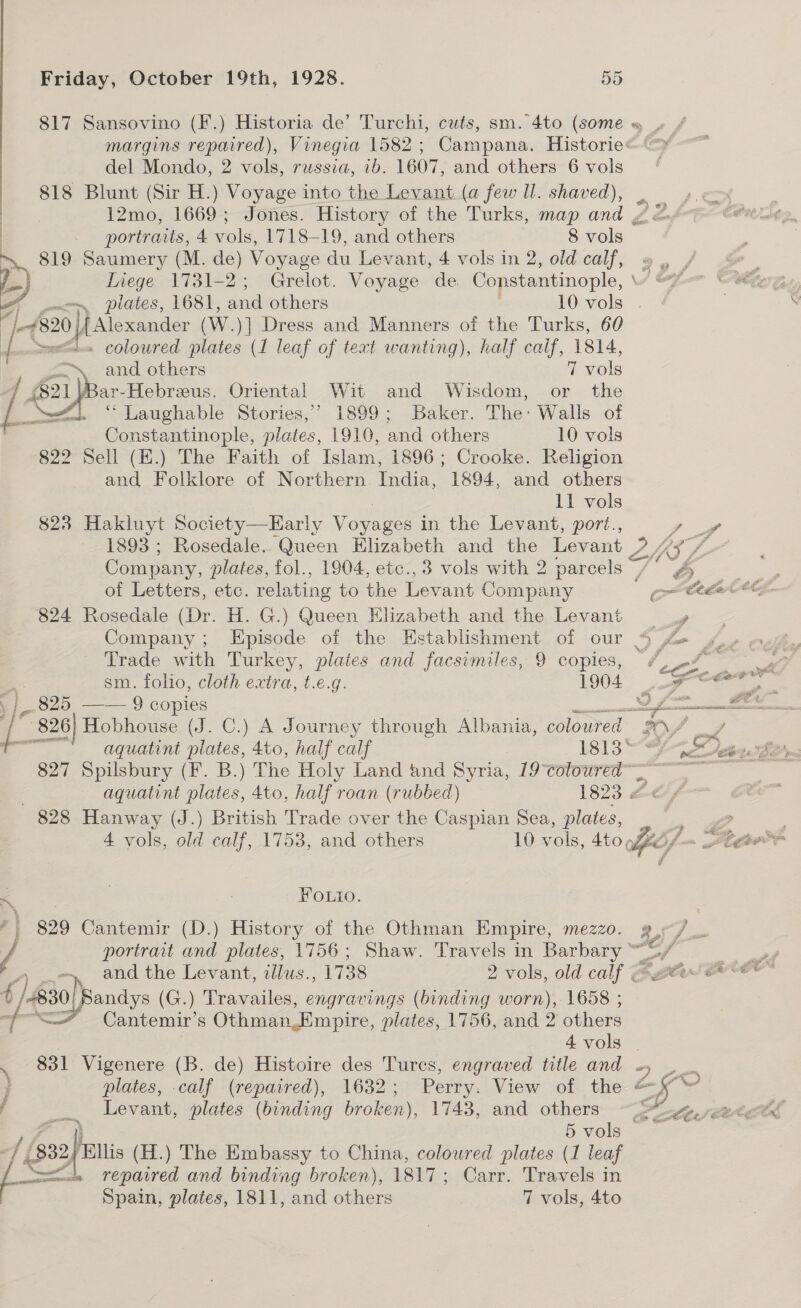 Friday, October 19th, 1928. 55
817 Sansovino (F.) Historia de' Turchi, cuts, sm. 4to (some
margins repaired), Vinegia 1582; Campana. Historie
del Mondo, 2 vols, russia, ib. 1607, and others 6 vols
818 Blunt (Sir H.) Voyage into the Levant (a few ll. shaved),
12mo, 1669; Jones. History of the Turks, map and
portraits, 4 vols, 1718–19, and others 8 vols
819 Saumery (M. de) Voyage du Levant, 4 vols in 2, old calf,
Liege 1731–2; Grelot. Voyage de Constantinople,
plates, 1681, and others 10 vols
820 [Alexander (W.)] Dress and Manners of the Turks, 60
coloured plates (1 leaf of text wanting), half calf, 1814,
and others 7 vols
821 Bar-Hebræus. Oriental Wit and Wisdom, or the
“Laughable Stories,” 1899; Baker. The Walls of
Constantinople, plates, 1910, and others 10 vols
822 Sell (E.) The Faith of Islam, 1896; Crooke. Religion
and Folklore of Northern India, 1894, and others
11 vols
823 Hakluyt Society—Early Voyages in the Levant, port.,
1893; Rosedale. Queen Elizabeth and the Levant
Company, plates, fol., 1904, etc., 3 vols with 2 parcels
of Letters, etc. relating to the Levant Company
824 Rosedale (Dr. H. G.) Queen Elizabeth and the Levant
Company; Episode of the Establishment of our
Trade with Turkey, plates and facsimiles, 9 copies,
sm. folio, cloth extra, t.e.g. 1904
825 —— 9 copies
826 Hobhouse (J. C.) A Journey through Albania, coloured
aquatint plates, 4to, half calf 1813
827 Spilsbury (F. B.) The Holy Land and Syria, 19 coloured
aquatint plates, 4to, half roan (rubbed) 1823
828 Hanway (J.) British Trade over the Caspian Sea, plates,
4 vols, old calf, 1753, and others 10 vols, 4to
FOLIO.
829 Cantemir (D.) History of the Othman Empire, mezzo.
portrait and plates, 1756; Shaw. Travels in Barbary
and the Levant, illus., 1738 2 vols, old calf
830 Sandys (G.) Travailes, engravings (binding worn), 1658;
Cantemir's Othman Empire, plates, 1756, and 2 others
4 vols
831 Vigenere (B. de) Histoire des Turcs, engraved title and
plates, calf (repaired), 1632; Perry. View of the
Levant, plates (binding broken), 1743, and others
5 vols
832 Ellis (H.) The Embassy to China, coloured plates (1 leaf
repaired and binding broken), 1817; Carr. Travels in
Spain, plates, 1811, and others 7 vols, 4to